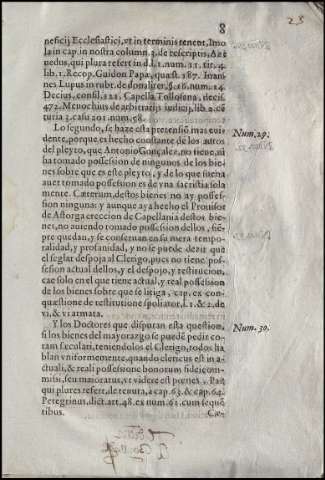 8
23
neficij Ecclesiastici, vt in terminis tenent, Imo
la in cap. in nostra column. 3. de rescriptis, Aze
uedus, qui plura refert in d. l. 1. num. 21. tit. 4.
lib. 1. Recop. Guidon Papæ, quæst. 187. Ioan-
nes Lupus in rubr. de donaliter. §. 16. num. 14.
Decius, consil. 121. Capella Tollosana, decis.
472. Menochius de arbitrarijs iudicij, lib. 2. cē
turia 3. casu 201. num. 58.
Lo segundo, se haze esta pretensiō mas eui
dente, porque es hecho constante de los autos
del pleyto, que Antonio Gonçalez, no tiene, ni
ha tomado possession de ningunos de los bie-
nes sobre que es este pleyto, y de lo que suena
auer tomado possession es de vna sacristia sola
mente. Cæterum, destos bienes no ay posses-
sion ninguna: y aunque ay a hecho el Prouisor
de Astorga ereccion de Capellania destos bie-
nes, no auiendo tomado possession dellos, siē-
pre quedan, y se conseruan en su mera tempo-
ralidad, y profanidad, y no se puede dezir que
el seglar despoja al Clerigo, pues no tiene pos-
sesion actual dellos, y el despojo, y restitucion,
cae solo en el que tiene actual, y real possesion
de los bienes sobre que se litiga, cap. ex con-
quæstione de restitutione spoliator. l. 1. & 2. de
vi, & vi armata.
Y los Doctores que disputan esta question,
si los bienes del mayorazgo se puedē pedir co-
ram sæculari, teniendolos el Clerigo, todos ha
blan vniformemente, quando clericus est in a-
ctuali, & reali possessione bonorum fideicom-
missi, seu maioratus, vt videre est penes, Paz
qui plures refert, de tenuta, 2. cap. 63. & cap. 64.
Peregrinus, dict. art. 48. ex num. 61. cum sequē
tibus.
Cæ-
Num. 29.
Num. 30.